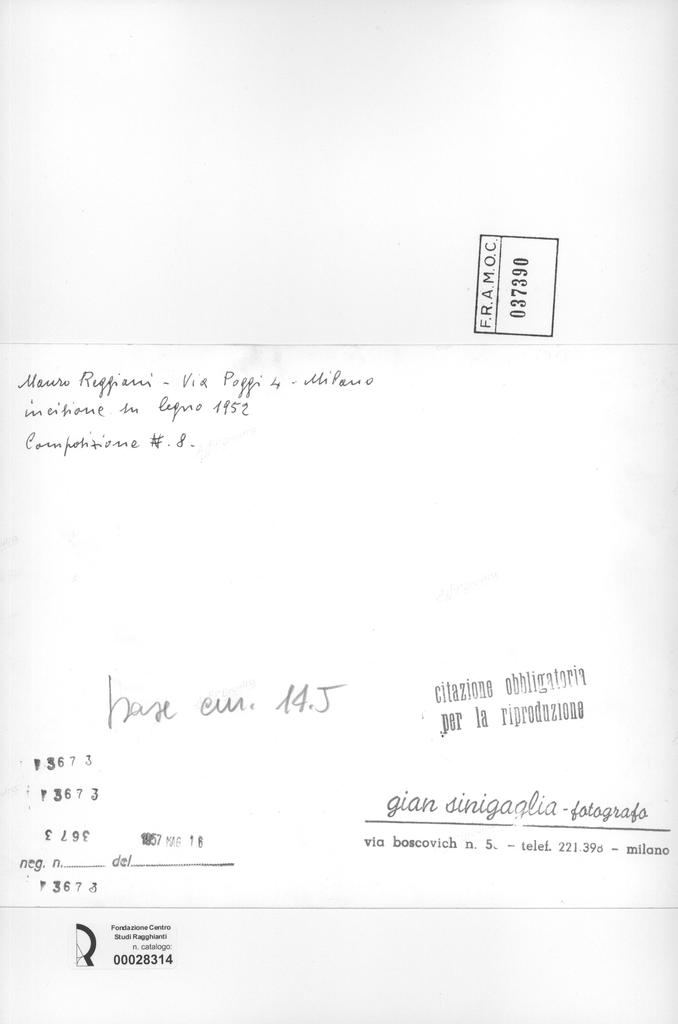 F.R.A.M.O.C.
037390
Mauro Reggiani - Via Poggi 4 - Milano
incisione su legno 1952
Composizione #. 8.
base cm. 14.5
citazione obbligatoria
per la riproduzione
3673
3673
3673
1957 MAG 16
neg. n. del
3673
gian sinigaglia - fotografo
via boscovich n. - telef. - milano
Fondazione Centro
Studi Ragghianti
n. catalogo:
00028314